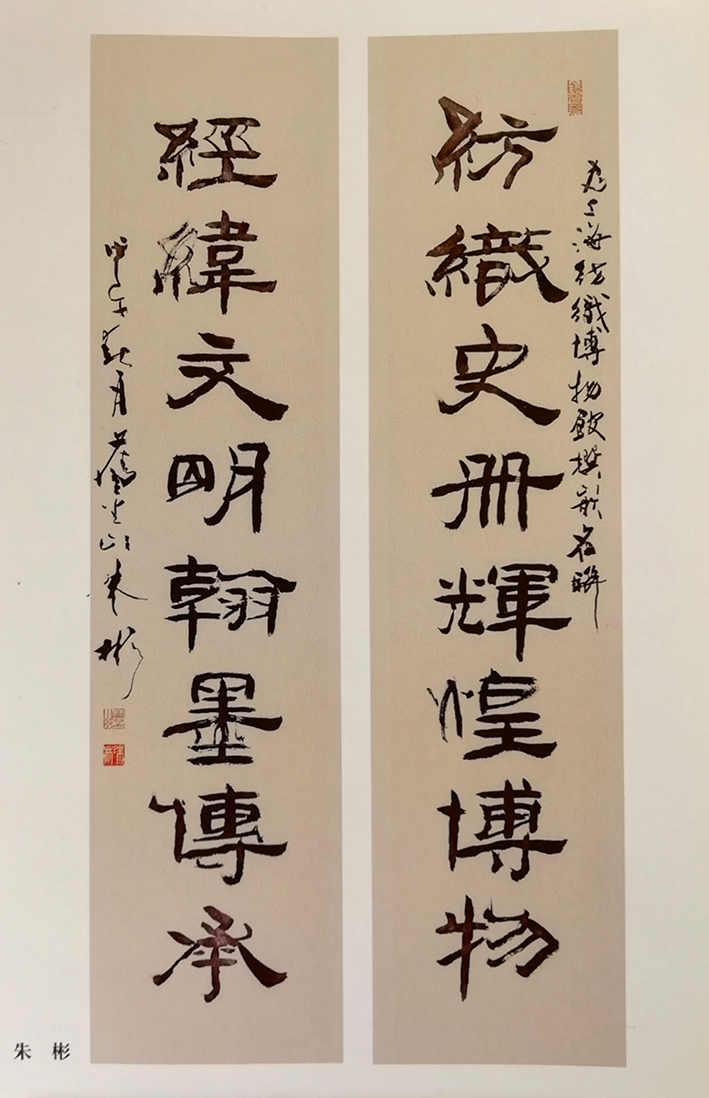 為上海纺織博物館撰嵌名聯
紡織史册輝煌博物
經緯文明翰墨傳承
甲午秋月朱彬
朱 彬